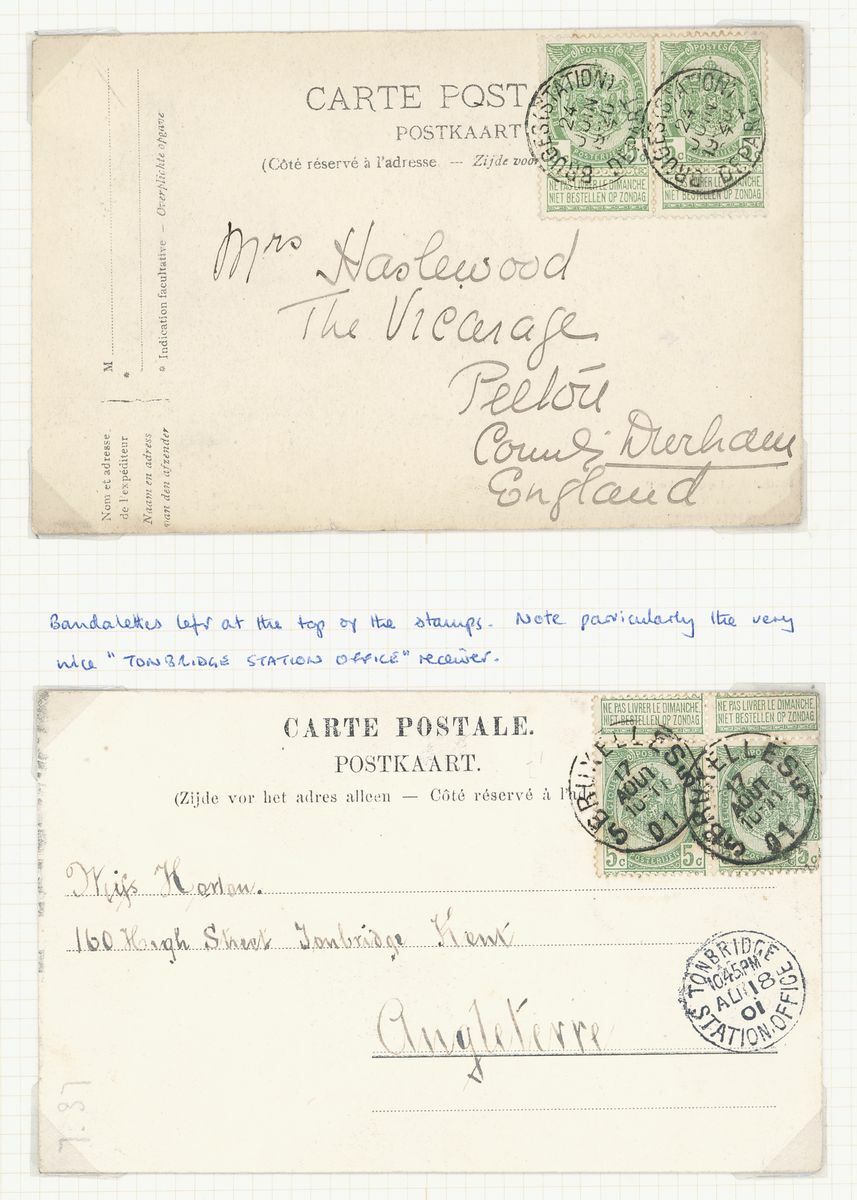 CARTE POST
POSTKAART
(Côté réservé à l'adresse — Zijde voor
POSTES
NE PAS LIVRER LE DIMANCHE
NIET BESTELLEN OP ZONDAG
NE PAS LIVRER LE DIMANCHE
NIET BESTELLEN OP ZONDAG
BRUGES (STATION) DEPART
24 JUIN
BRUGES (STATION) DEPART
24 JUIN
Mrs Haslewood
The Vicarage
Pelton
County Durham
England
M
*
* Indication facultative — Overplichte opgave
Nom et adresse
de l'expéditeur
Naam en adress
van den afzender
Bandalettes left at the top of the stamps. Note particularly the very
nice "TONBRIDGE STATION OFFICE" receiver.
CARTE POSTALE.
POSTKAART.
(Zijde vor het adres alleen — Côté réservé à l'ad
NE PAS LIVRER LE DIMANCHE
NIET BESTELLEN OP ZONDAG
NE PAS LIVRER LE DIMANCHE
NIET BESTELLEN OP ZONDAG
BRUXELLES 5
17
AOUT
10-11
01
BRUXELLES 5
17
AOUT
10-11
01
5c POSTERIJEN 5c
5c
Horton.
160 High Street Tonbridge Kent
Angleterre
TONBRIDGE
10.45PM
AU 18
01
STATION.OFFICE